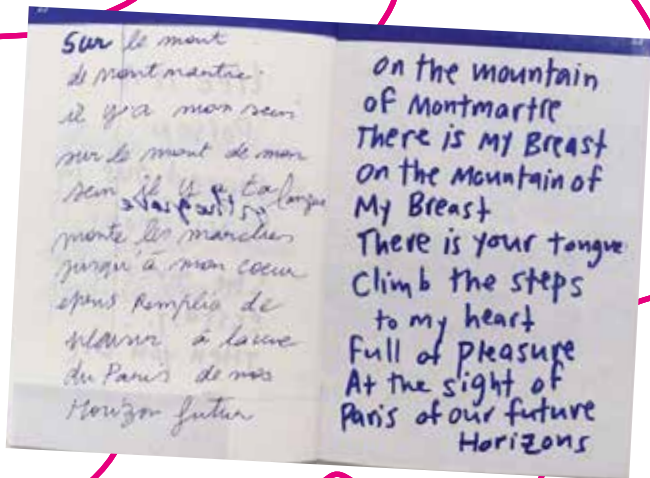 Sur le mont
de montmartre
il y a mon sein
sur le mont de mon
sein il y a ta langue
monte les marches
jusqu'à mon coeur
épris Remplie de
plaisir à la vue
du Paris de nos
Horizon futur
on the mountain
of Montmartre
There is My Breast
on the Mountain of
My Breast
There is your tongue
Climb the steps
to my heart
Full of Pleasure
At the sight of
Paris of our future
Horizons